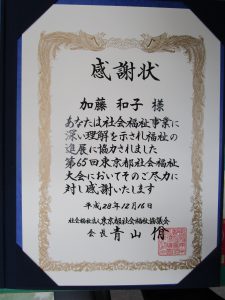 感謝状
加藤 和子 様
あなたは社会福祉事業に
深い理解を示され福祉の
進展に協力されました
第65回東京都社会福祉
大会においてそのご尽力に
対し感謝いたします
平成28年12月16日
社会福祉法人東京都社会福祉協議会
会長 青山 佾